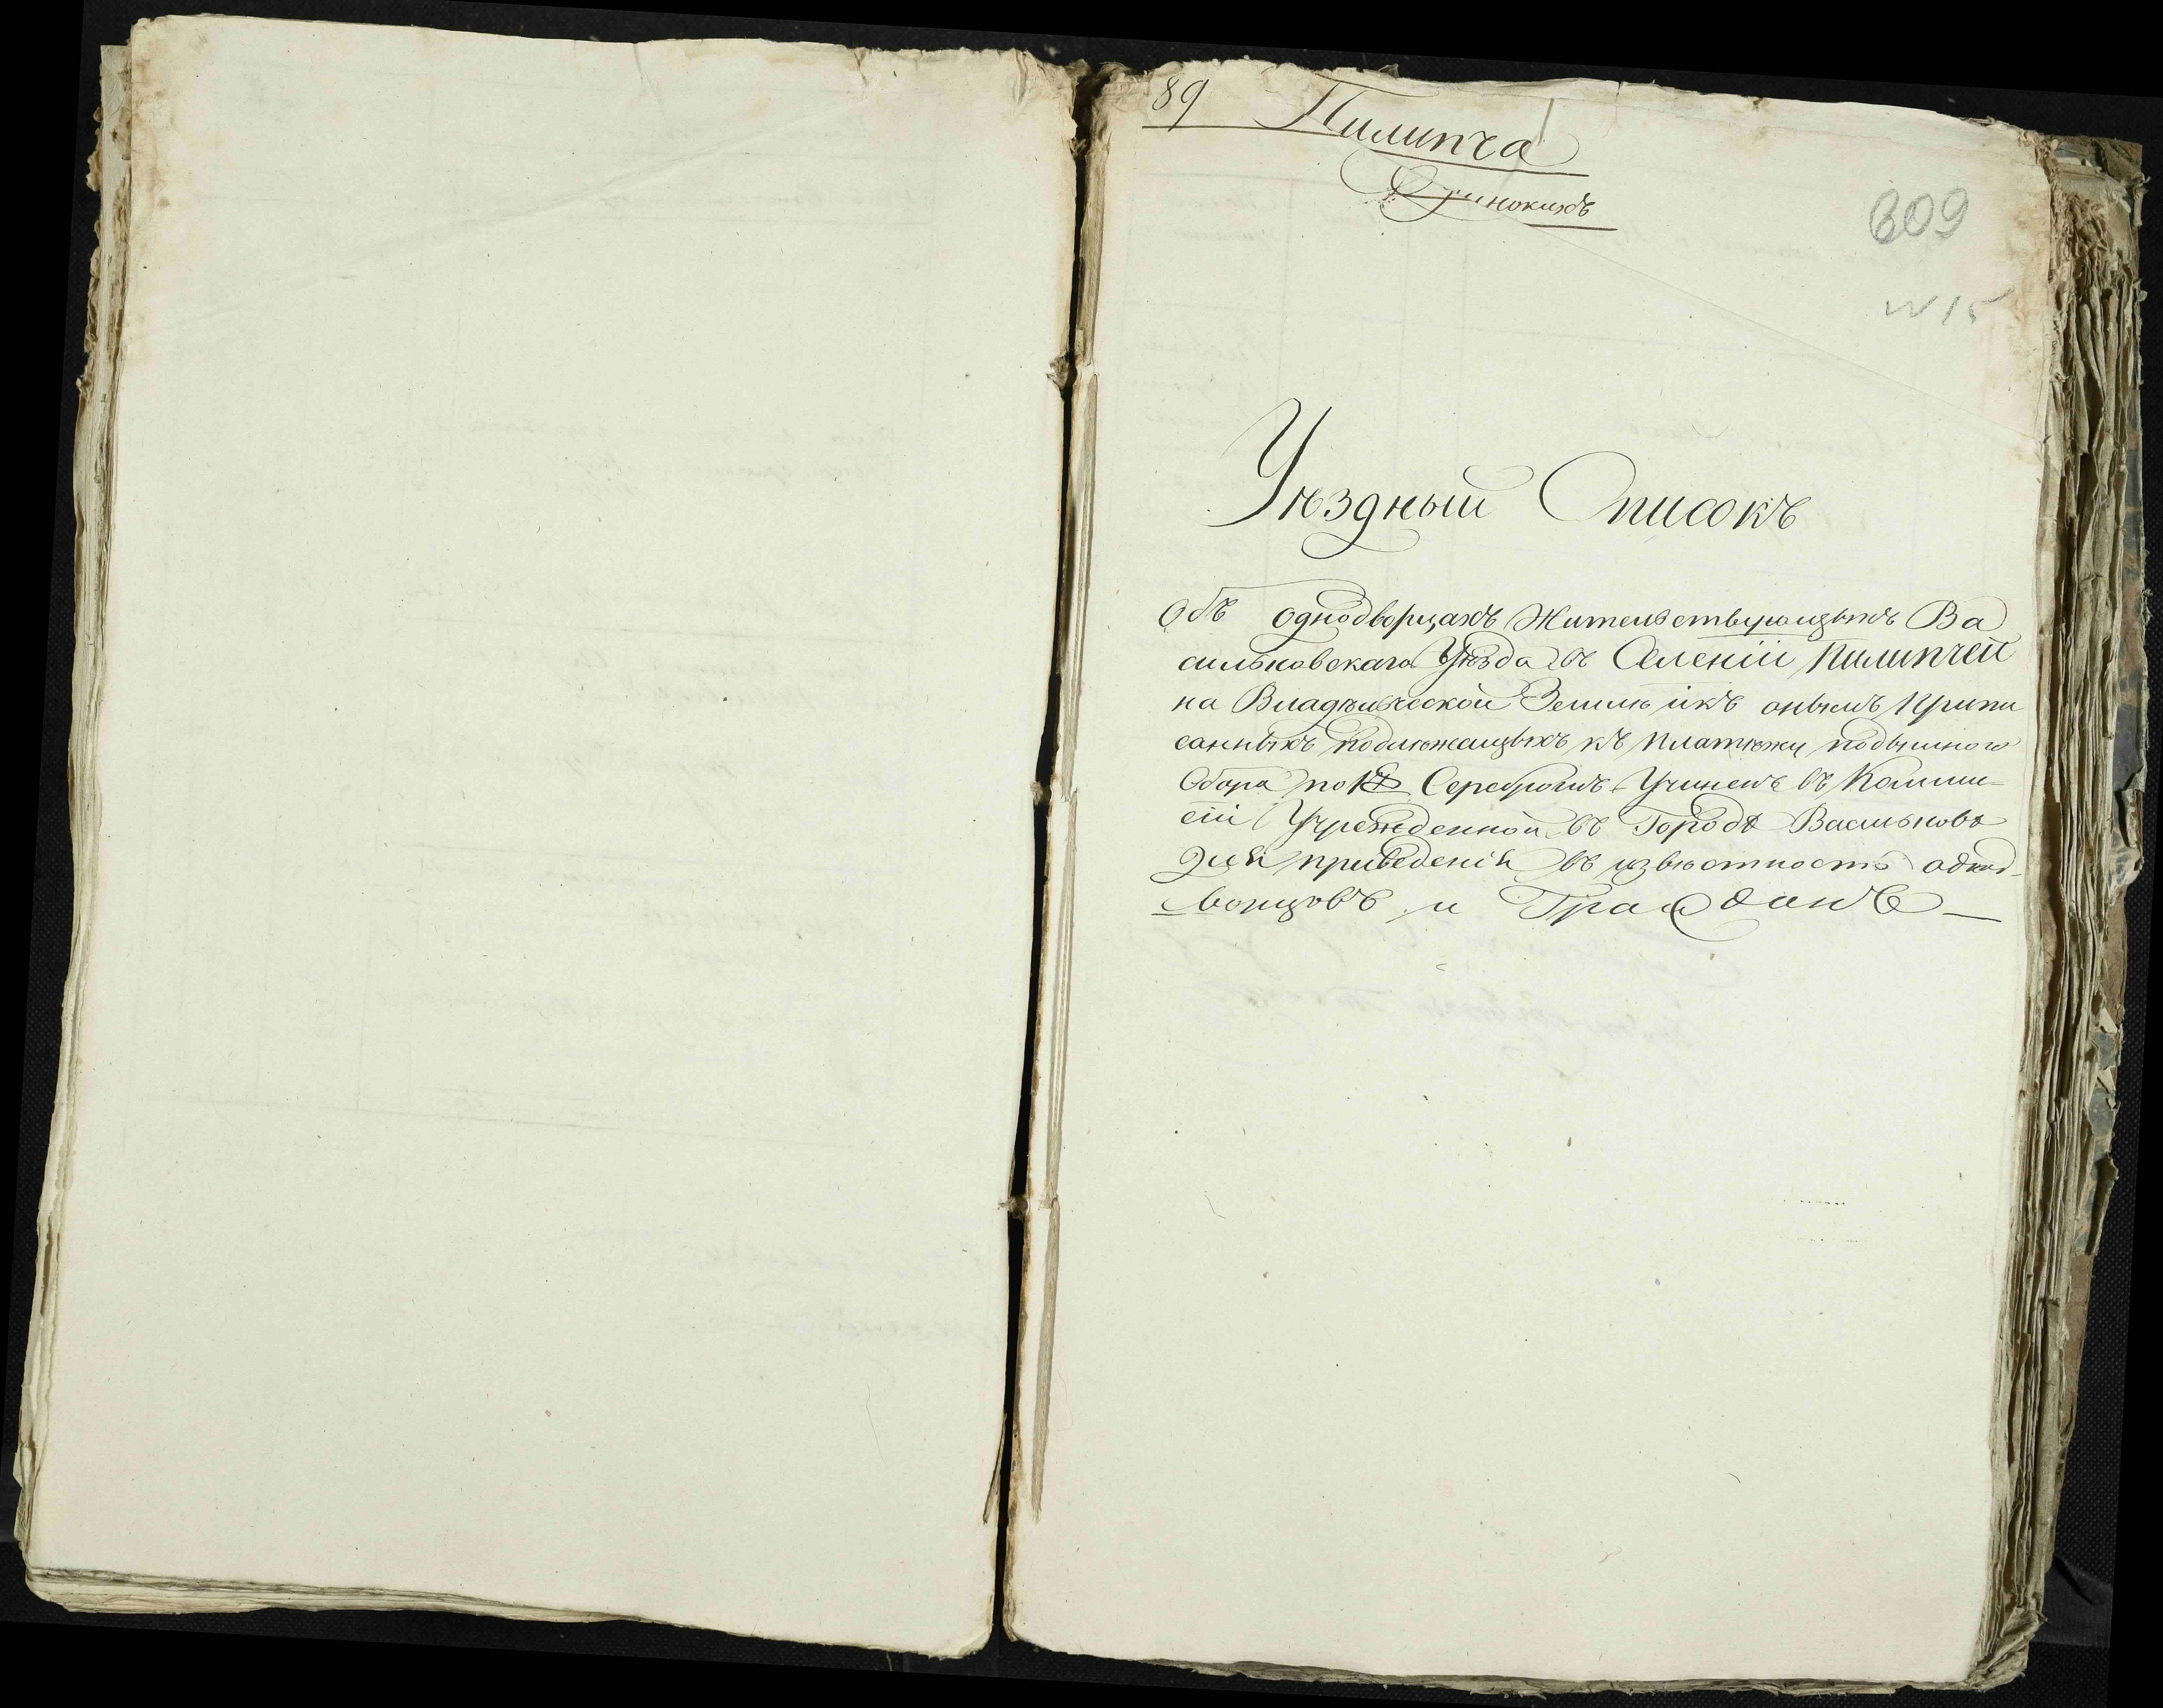 89 Пилипча
Одинокихъ
609
N 15
Уѣздный Списокъ
Объ однодворцахъ Жительствующихъ Ва
сильковскаго Уѣзда въ Селеніи Пилипчей
на Владѣльческой Землѣ икъ онымъ Припи
санныхъ подлѣжащихъ къ платѣжу подымнаго
Сбора по Серебромъ Учиненъ въ Комми-
сіи Учрежденной въ Городѣ Васильковѣ
Для приведенія въ извѣстность однод-
ворцовъ и Гражданъ —